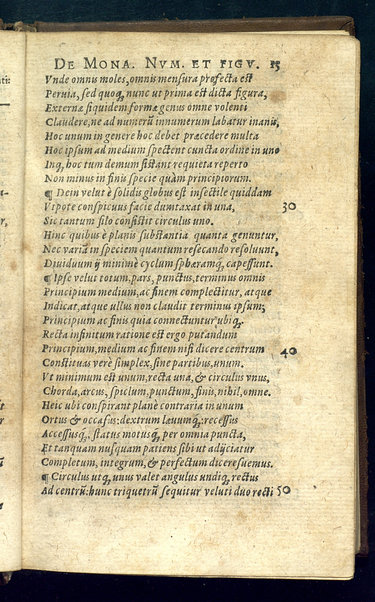 DE MONA. NVM. ET FIGV. 15
Vnde omnis moles, omnis mensura profecta est
Peruia, sed quoq, nunc ut prima est dicta figura,
Externæ siquidem formæ genus omne volenti
Claudere, ne ad numerū innumerum labatur inanis,
Hoc unum in genere hoc debet præcedere multa
Hoc ipsum ad medium spectent cuncta ordine in uno
Inq, hoc tum demum sistant requieta reperto
Non minus in finis specie quàm principiorum.
¶ Dein velut è solidis globus est insectile quiddam
Vtpote conspicuus facie dumtaxat in una, 30
Sic tantum filo consistit circulus uno.
Hinc quibus è planis substantia quanta genuntur,
Nec variā in speciem quantum resecando resoluunt,
Diuiduum ij minimè cyclum sphæramq, capessunt.
¶ Ipse velut totum, pars, punctus, terminus omnis
Principium medium, ac finem complectitur, atque
Indicat, atque ullus non claudit terminus ipsum;
Principium ac finis quia connectuntur ubiq,.
Recta infinitum ratione est ergo putandum
Principium, medium ac finem nisi dicere centrum 40
Constituas verè simplex, sine partibus, unum.
Vt minimum est unum, recta unā, & circulus vnus,
Chorda, arcus, spiclum, punctum, finis, nihil, omne.
Heic ubi conspirant planè contraria in unum
Ortus & occasus: dextrum lauumq,: recessus
Accessusq,, status motusq,, per omnia puncta,
Et tanquam nusquam patiens sibi ut adijciatur
Completum, integrum, & perfectum dicere suemus.
¶ Circulus utq, unus valet angulus undiq, rectus
Ad centrū: hunc triquetrū sequitur veluti duo recti 50